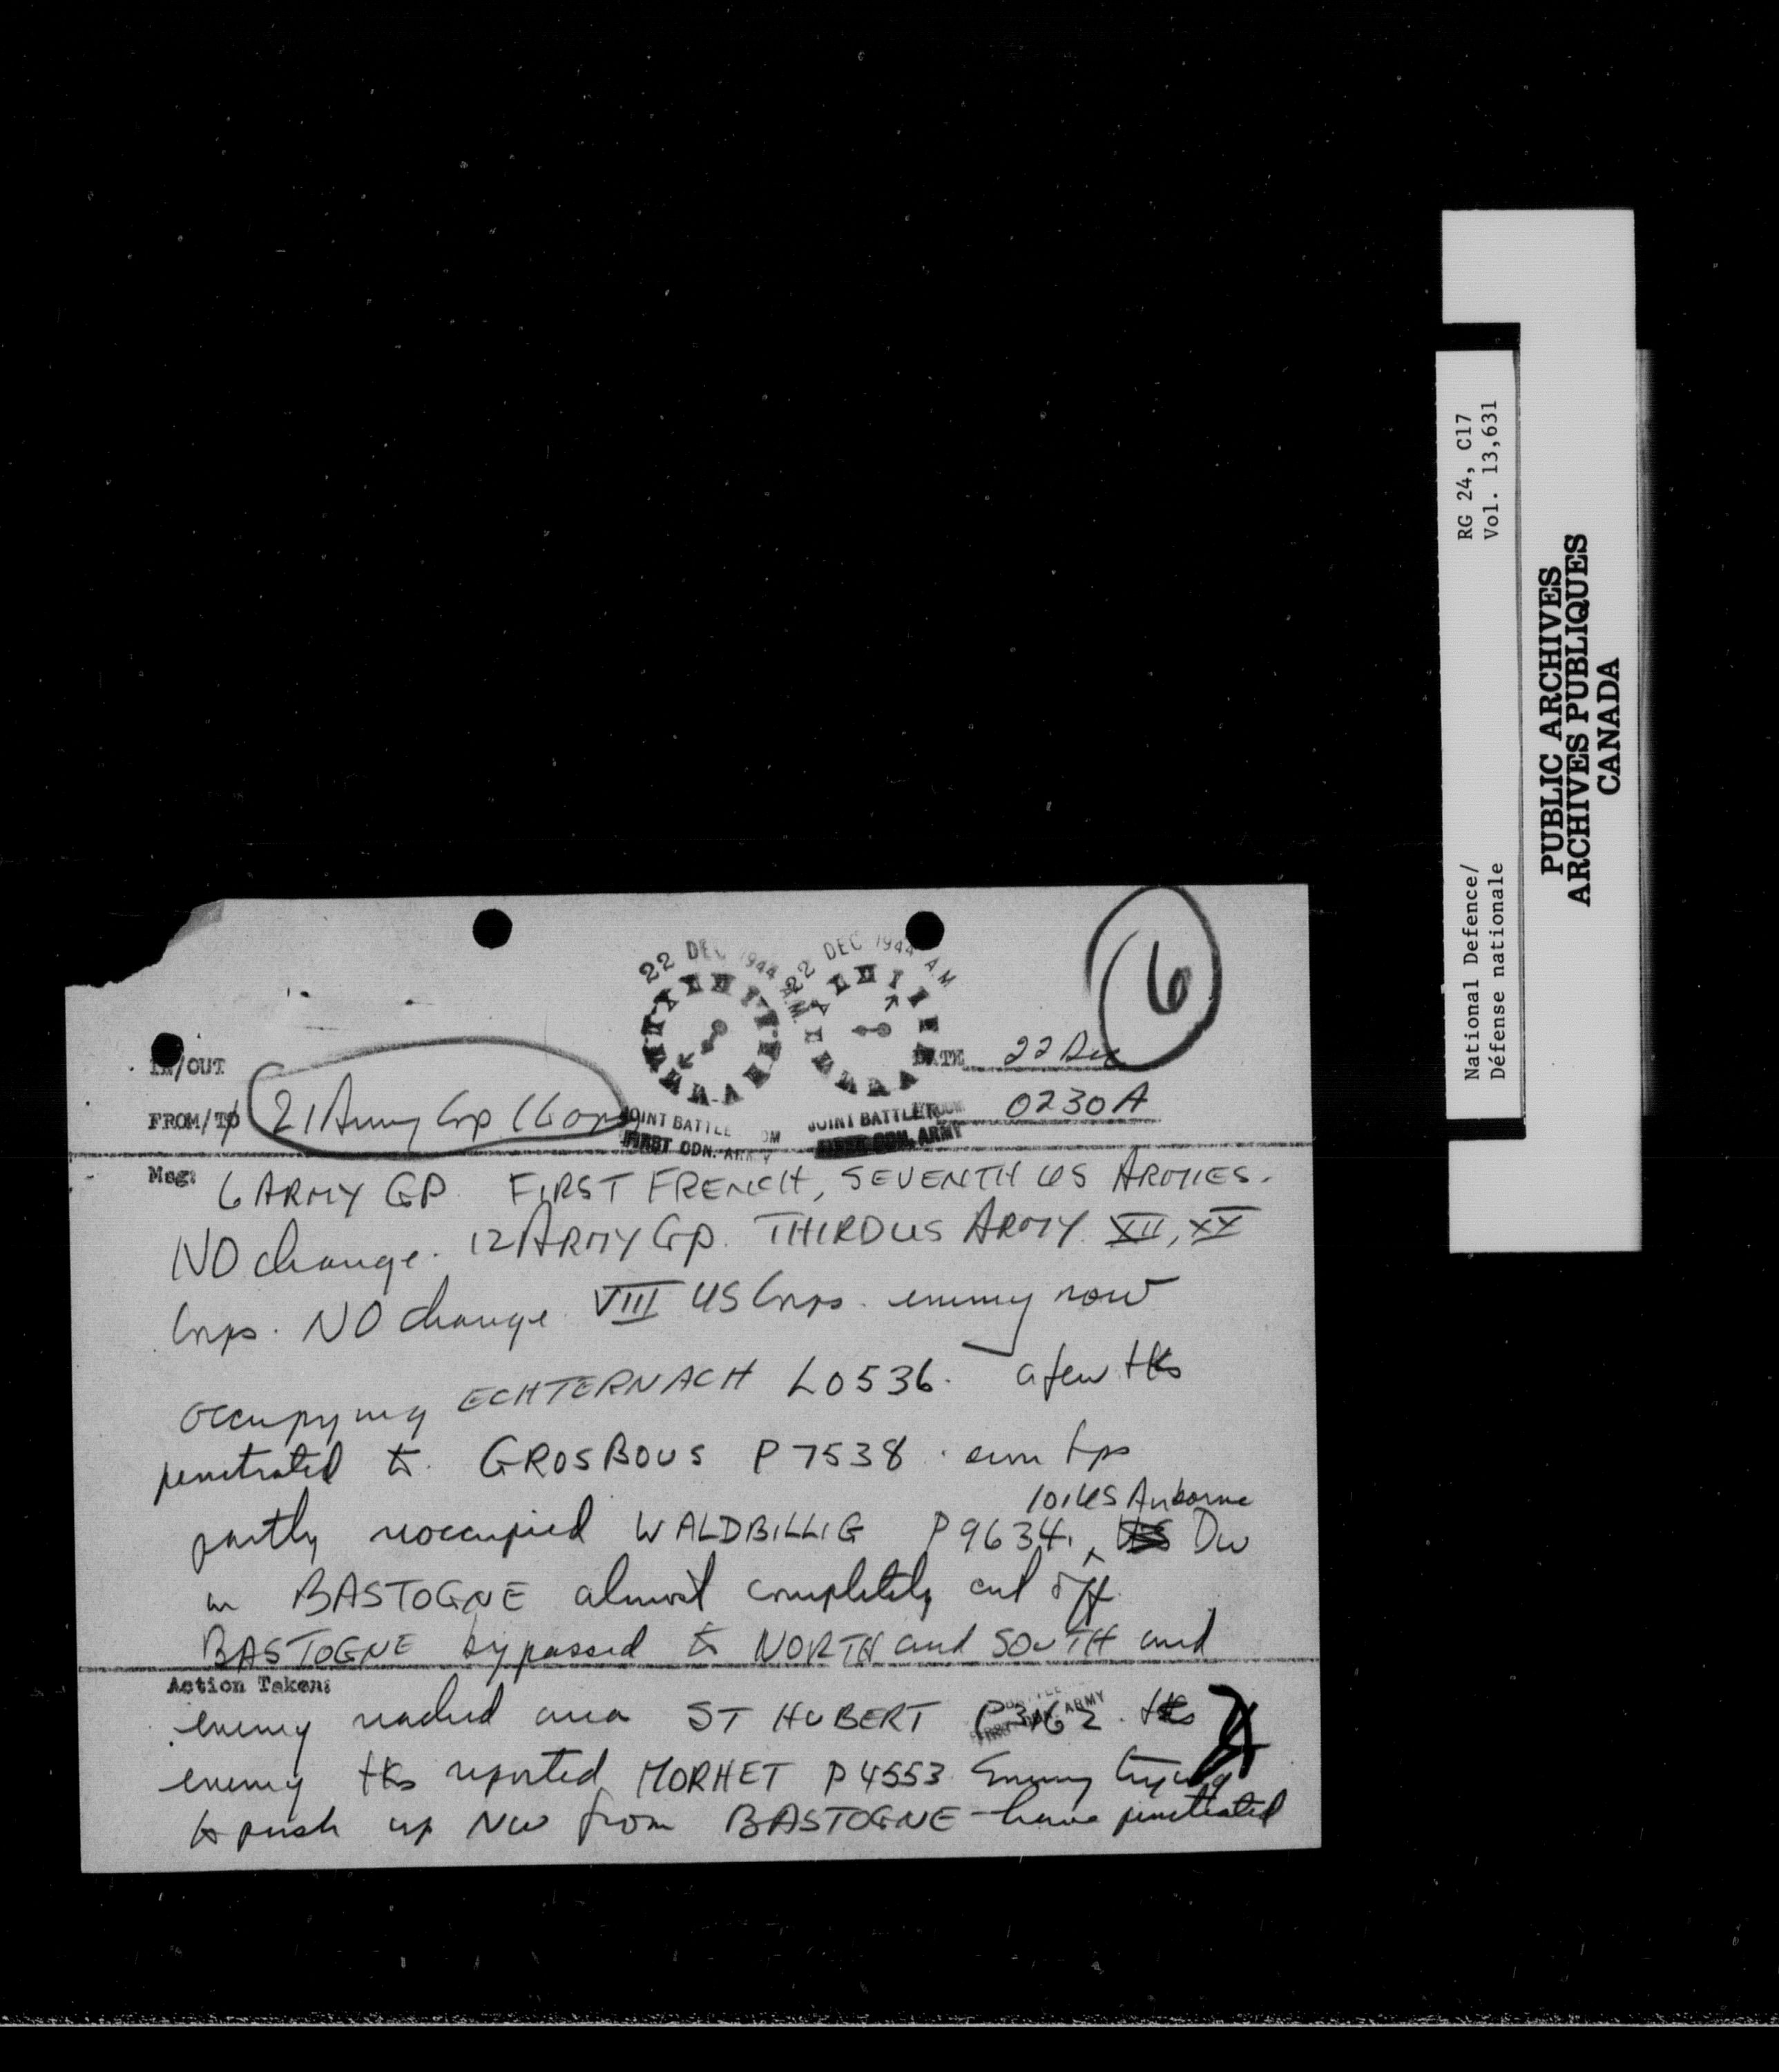 6
22 DEC 1944
22 DEC 1944 A.M.
IN/OUT
DATE 22 Dec
FROM/TO 21 Army Gp
0230A
JOINT BATTLE OM
FIRST CDN. ARMY
JOINT BATTLEROOM
FIRST CDN. ARMY
Msg: 6 ARMY GP. FIRST FRENCH, SEVENTH US ARMIES.
NO change. 12 ARMY Gp. THIRD US ARMY. XII, XX
Corps. NO change. VIII US Corps. enemy now
occupying ECHTERNACH L0536. a few tks
penetrated to GROSBOUS P7538. enemy tps
101 US Airborne
partly reoccupied WALDBILLIG P9634. Div
in BASTOGNE almost completely cut off.
BASTOGNE bypassed to NORTH and SOUTH and
Action Taken:
enemy reached area ST HUBERT P3162. tks
enemy tks reported MORHET P4553. Enemy trying
to push up NW from BASTOGNE - have penetrated
RG 24, C17
Vol. 13,631
National Defence/
Défense nationale
PUBLIC ARCHIVES
ARCHIVES PUBLIQUES
CANADA